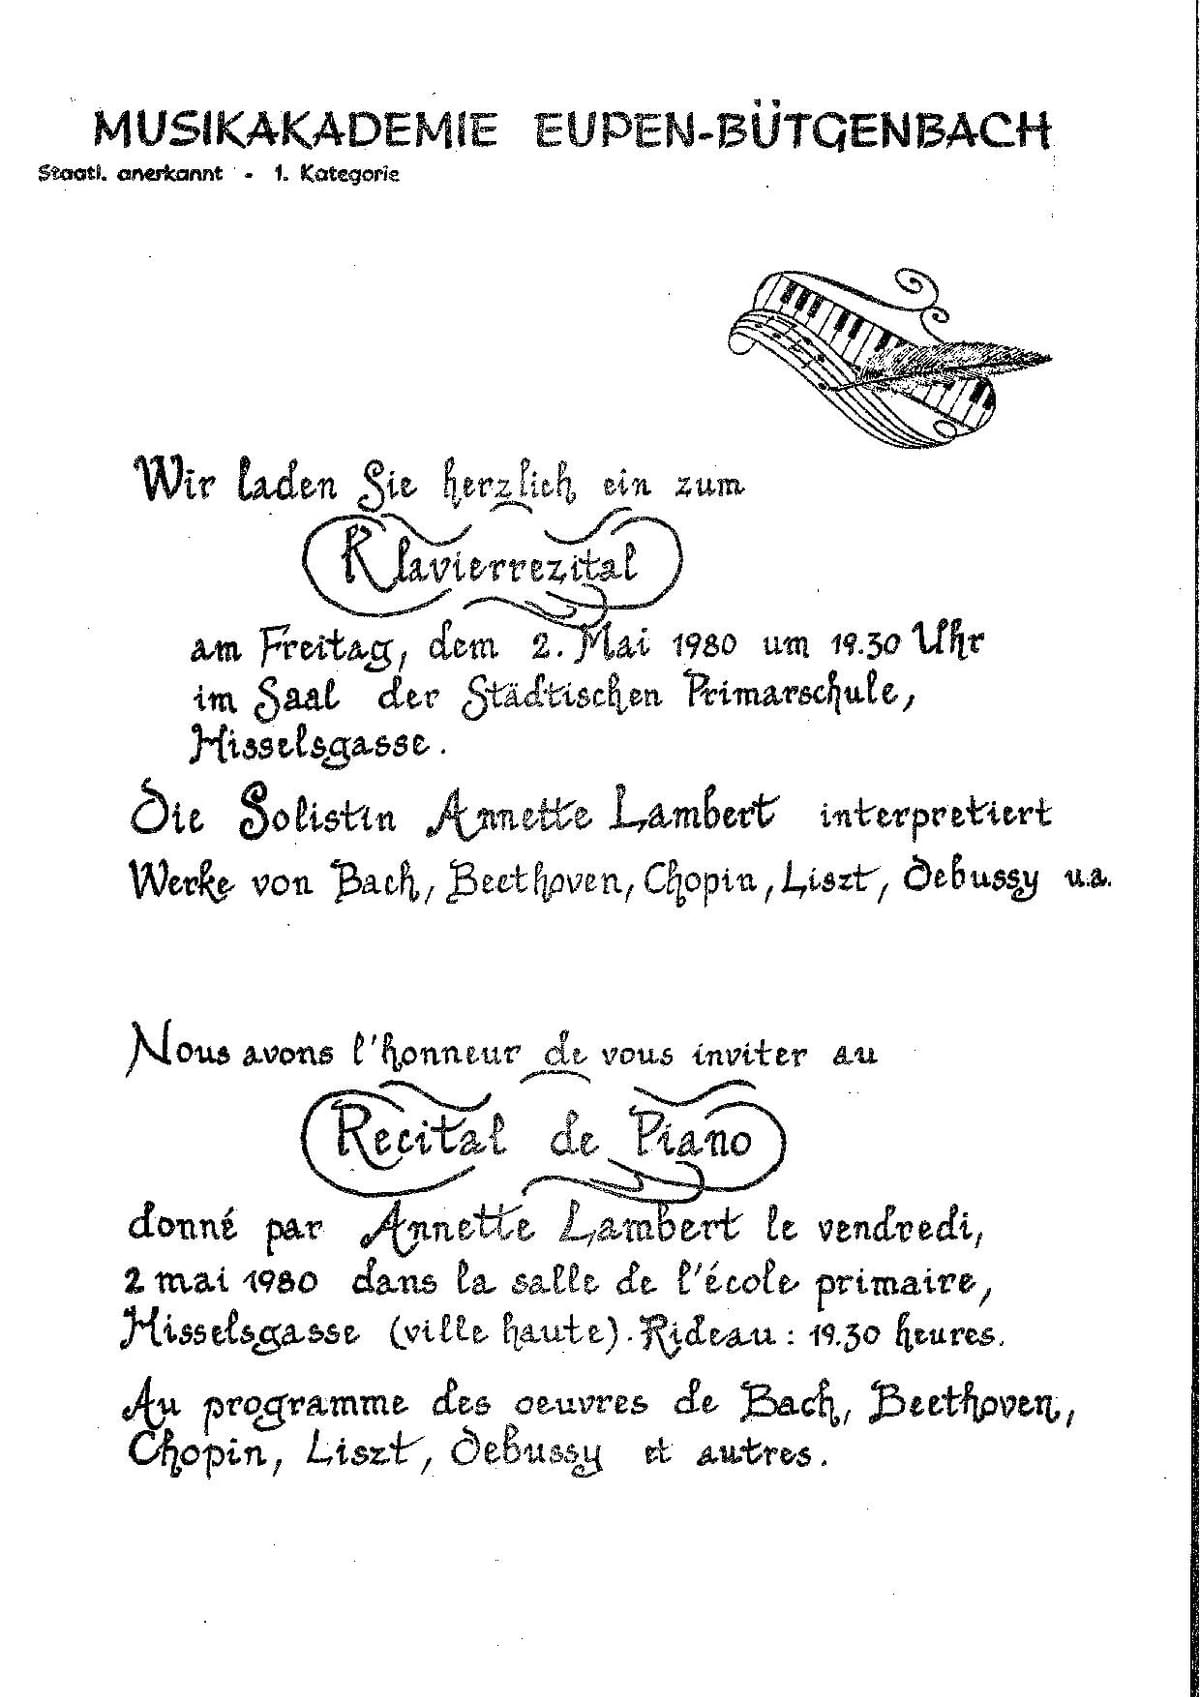 MUSIKAKADEMIE EUPEN-BÜTGENBACH
Staatl. anerkannt - 1. Kategorie
Wir laden Sie herzlich ein zum
Klavierrezital
am Freitag, dem 2. Mai 1980 um 19.30 Uhr
im Saal der Städtischen Primarschule,
Hisselsgasse.
Die Solistin Annette Lambert interpretiert
Werke von Bach, Beethoven, Chopin, Liszt, Debussy u.a.
Nous avons l'honneur de vous inviter au
Recital de Piano
donné par Annette Lambert le vendredi,
2 mai 1980 dans la salle de l'école primaire,
Hisselsgasse (ville haute). Rideau : 19.30 heures.
Au programme des oeuvres de Bach, Beethoven,
Chopin, Liszt, Debussy et autres.